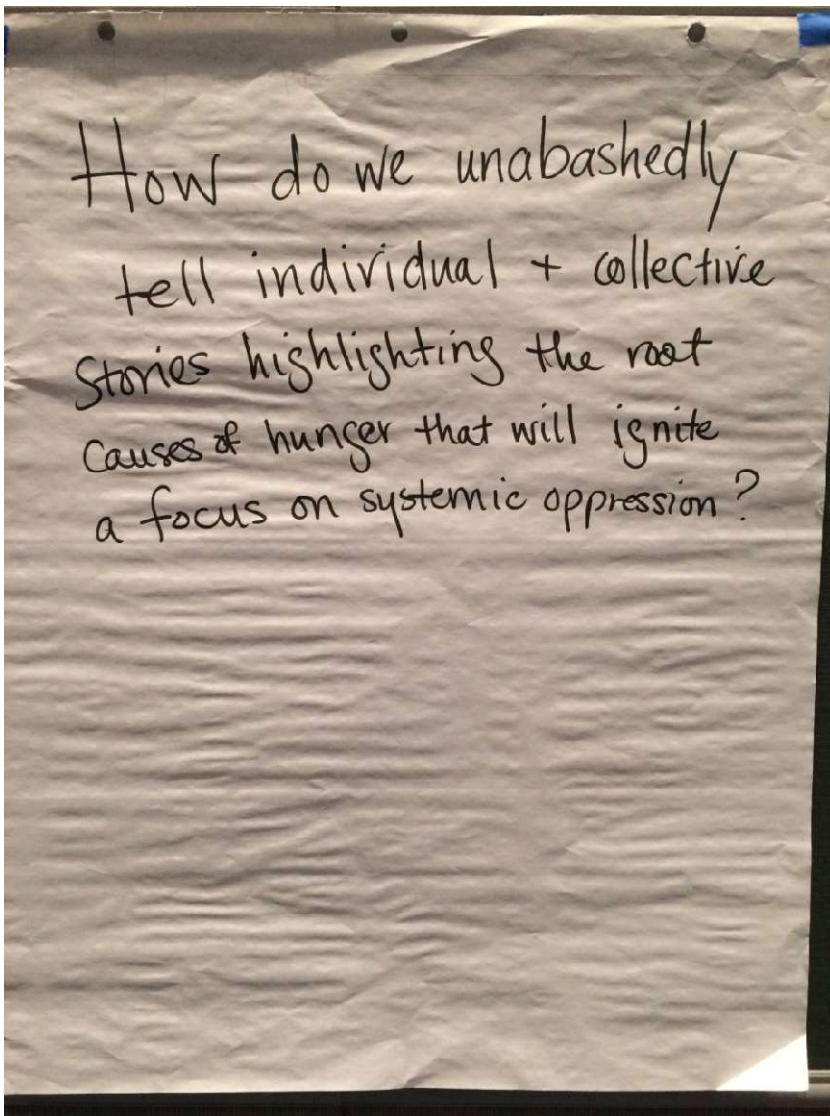 How do we unabashedly
tell individual + collective
Stories highlighting the root
Causes of hunger that will ignite
a focus on systemic oppression?